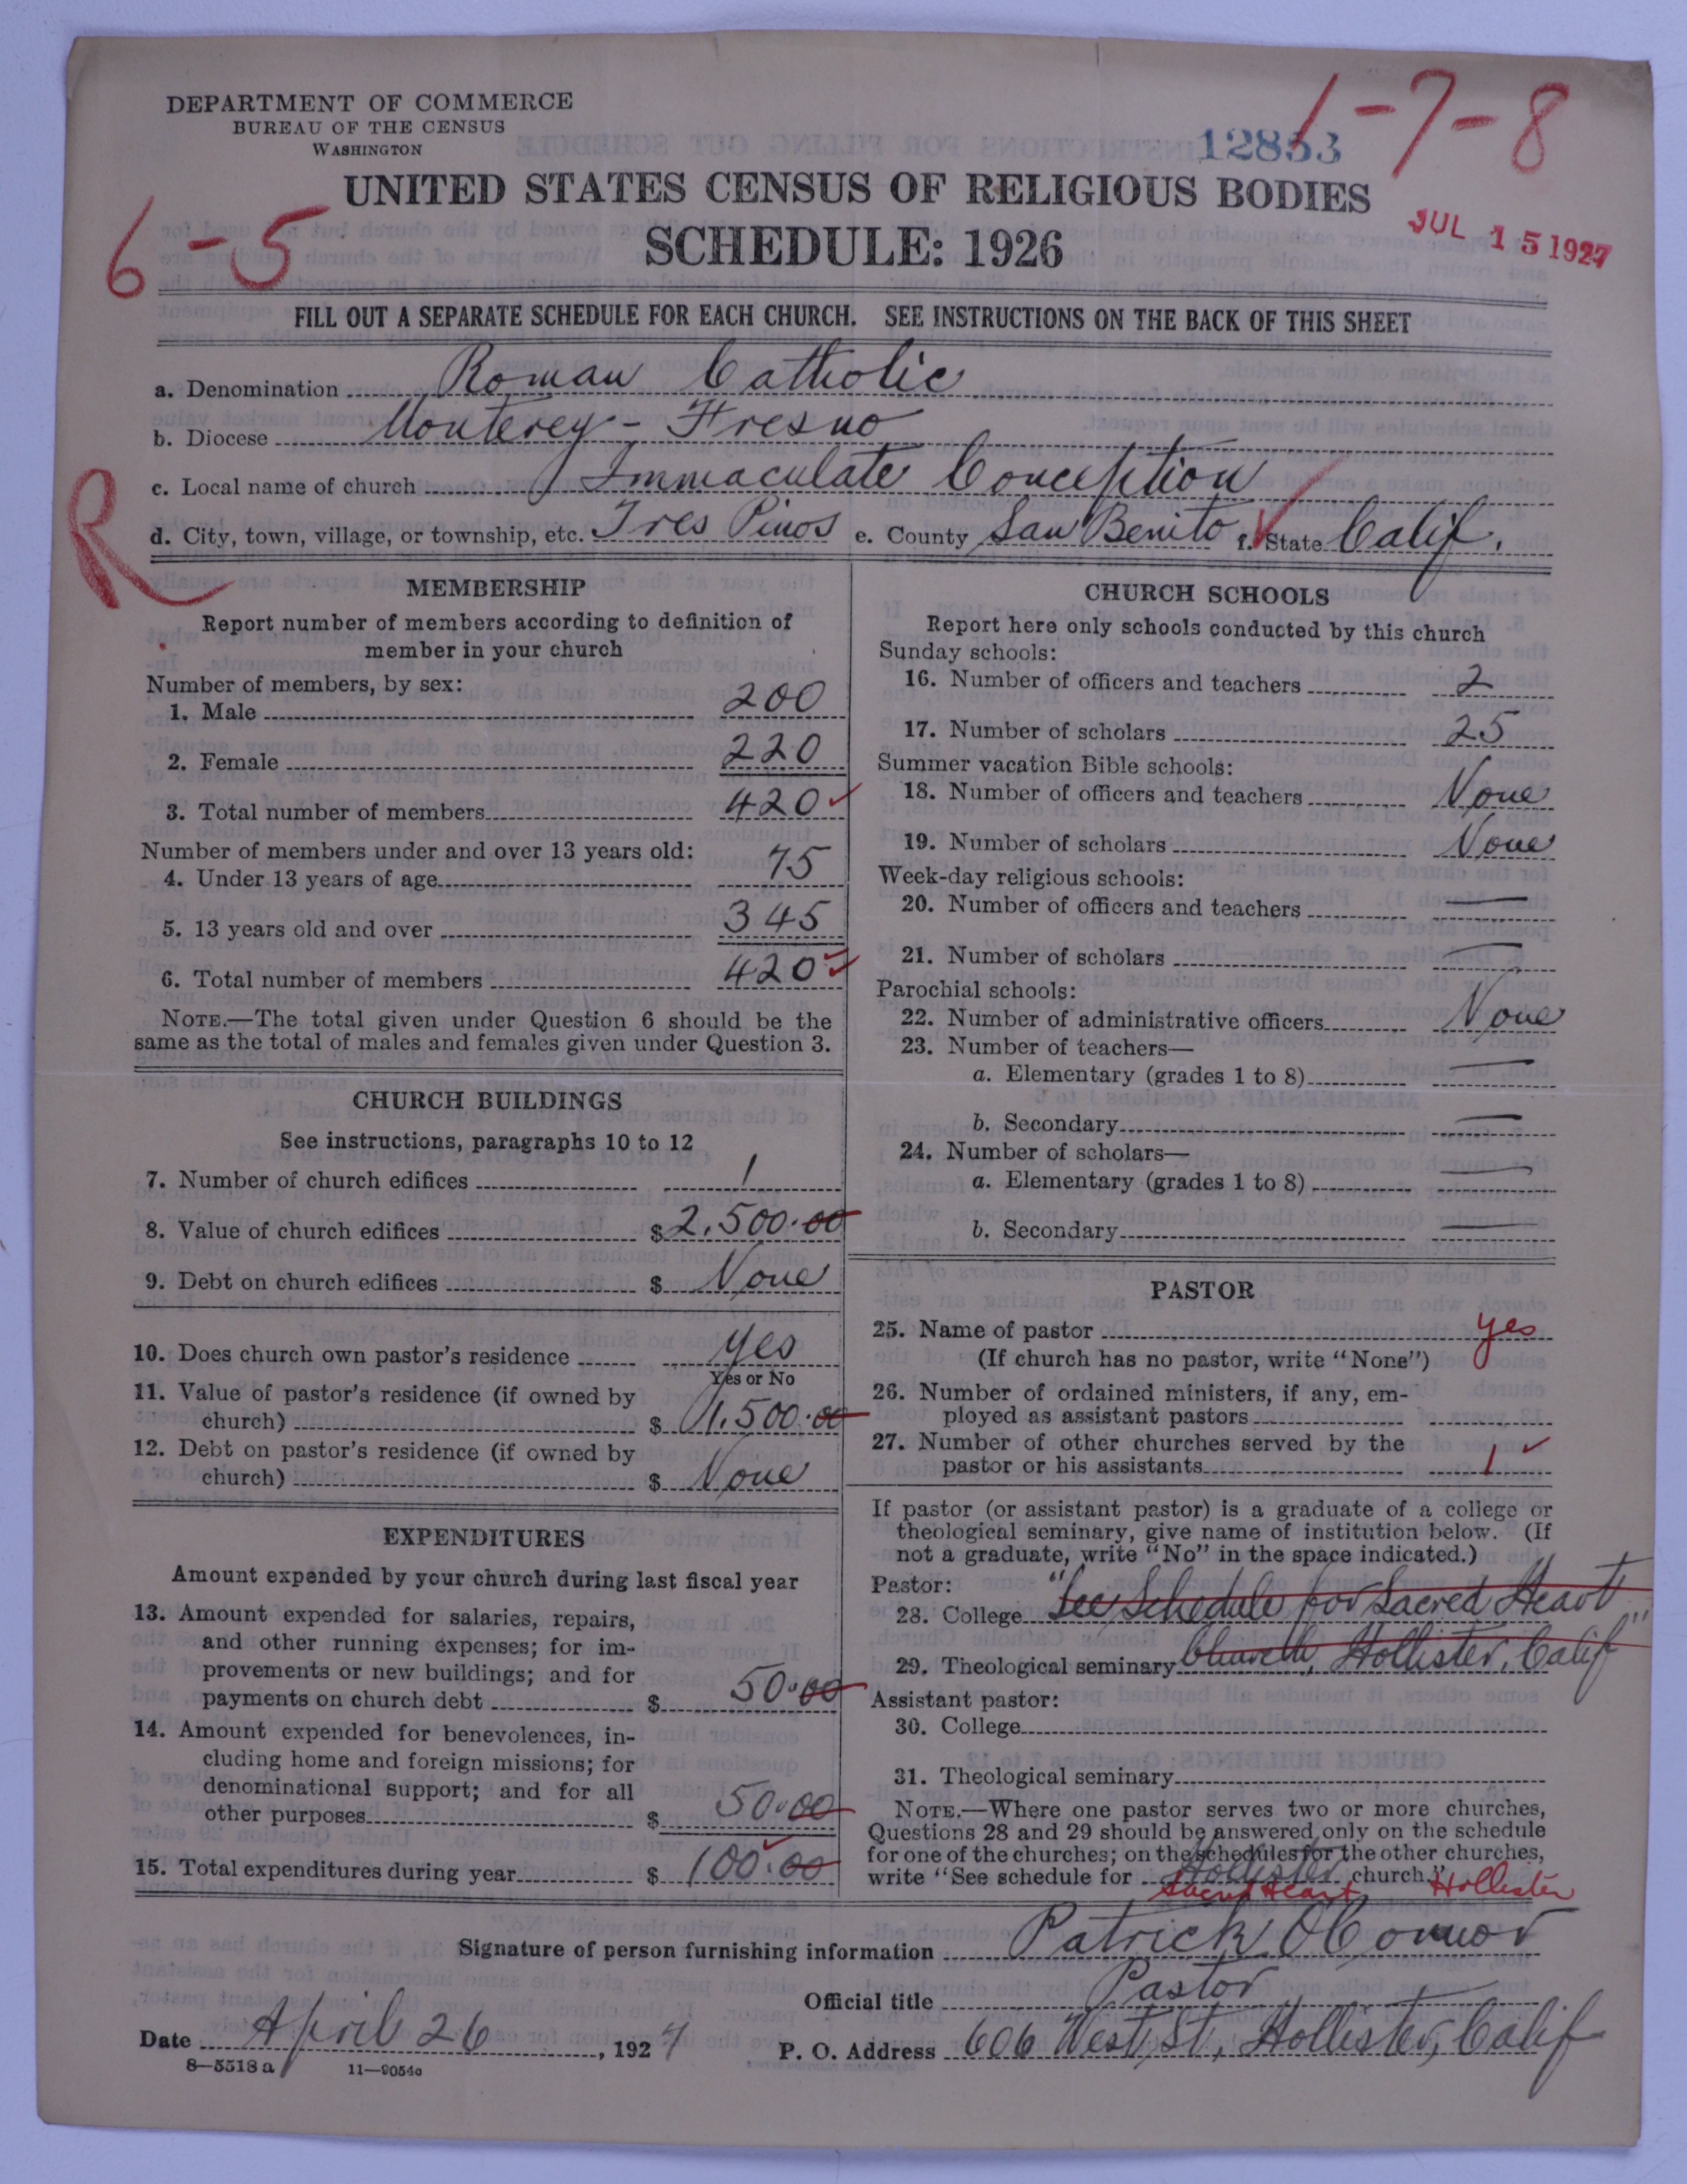 DEPARTMENT OF COMMERCE
BUREAU OF THE CENSUS
WASHINGTON
12853
1-7-8
UNITED STATES CENSUS OF RELIGIOUS BODIES
SCHEDULE: 1926
6-5
JUL 15 1927
FILL OUT A SEPARATE SCHEDULE FOR EACH CHURCH. SEE INSTRUCTIONS ON THE BACK OF THIS SHEET
a. Denomination Roman Catholic
b. Diocese Monterey - Fresno
c. Local name of church Immaculate Conception
d. City, town, village, or township, etc. Tres Pinos e. County San Benito f. State Calif.
R
MEMBERSHIP
Report number of members according to definition of
member in your church
Number of members, by sex:
1. Male 200
2. Female 220
3. Total number of members 420
Number of members under and over 13 years old:
4. Under 13 years of age 75
5. 13 years old and over 345
6. Total number of members 420
NOTE.—The total given under Question 6 should be the
same as the total of males and females given under Question 3.
CHURCH BUILDINGS
See instructions, paragraphs 10 to 12
7. Number of church edifices 1
8. Value of church edifices $ 2,500.00
9. Debt on church edifices $ None
10. Does church own pastor's residence yes
Yes or No
11. Value of pastor's residence (if owned by
church) $ 1,500.00
12. Debt on pastor's residence (if owned by
church) $ None
EXPENDITURES
Amount expended by your church during last fiscal year
13. Amount expended for salaries, repairs,
and other running expenses; for im-
provements or new buildings; and for
payments on church debt $ 50.00
14. Amount expended for benevolences, in-
cluding home and foreign missions; for
denominational support; and for all
other purposes $ 50.00
15. Total expenditures during year $ 100.00
CHURCH SCHOOLS
Report here only schools conducted by this church
Sunday schools:
16. Number of officers and teachers 2
17. Number of scholars 25
Summer vacation Bible schools:
18. Number of officers and teachers None
19. Number of scholars None
Week-day religious schools:
20. Number of officers and teachers —
21. Number of scholars —
Parochial schools:
22. Number of administrative officers None
23. Number of teachers—
a. Elementary (grades 1 to 8) —
b. Secondary —
24. Number of scholars—
a. Elementary (grades 1 to 8) —
b. Secondary —
PASTOR
25. Name of pastor yes
(If church has no pastor, write "None")
26. Number of ordained ministers, if any, em-
ployed as assistant pastors
27. Number of other churches served by the
pastor or his assistants 1
If pastor (or assistant pastor) is a graduate of a college or
theological seminary, give name of institution below. (If
not a graduate, write "No" in the space indicated.)
Pastor:
28. College "See Schedule for Sacred Heart
29. Theological seminary Church, Hollister, Calif"
Assistant pastor:
30. College
31. Theological seminary
NOTE.—Where one pastor serves two or more churches,
Questions 28 and 29 should be answered only on the schedule
for one of the churches; on the schedules for the other churches,
write "See schedule for Hollister church."
Sacred Heart Hollister
Signature of person furnishing information Patrick O'Connor
Official title Pastor
Date April 26, 1927
P. O. Address 606 West St, Hollister, Calif
8—5518 a 11—9054c